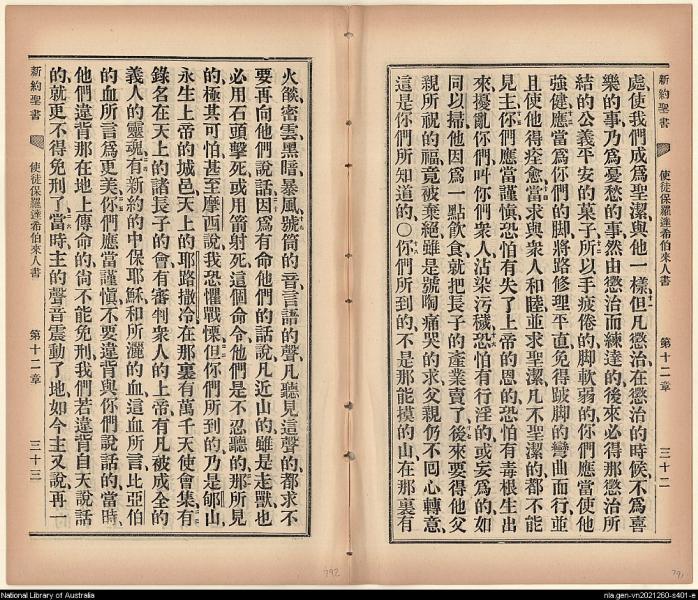 新約聖書
使徒保羅達希伯來人書
第十二章
三十二
處、使我們成爲聖潔、與他一樣、但凡懲治、在懲治的時候、不爲喜
樂的事、乃爲憂愁的事、然由懲治而練達的、後來必得那懲治所
結的公義平安的菓子、所以手疲倦的、脚軟弱的、你們應當使他
強健、應當爲你們的脚、將路修理平直、免得跛脚的彎曲而行、並
且使他得痊愈、當求與衆人和睦、並求聖潔、凡不聖潔的、都不能
見主、你們應當謹愼、恐怕有失了上帝的恩的、恐怕有毒根生出
來擾亂你們、叫你們衆人沾染汚穢、恐怕有行淫的、或妄爲的、如
同以掃、他因爲一點飲食、就把長子的產業賣了、後來要得他父
親所祝的福、竟被棄絕、雖是號啕痛哭的求、父親仍不回心轉意、
這是你們所知道的、〇你們所到的、不是那能摸的山、在那裏有
火燄、密雲、黑暗、暴風、號筒的音、言語的聲、凡聽見這聲的、都求不
要再向他們說話、因爲有命他們的話說、凡近山的、雖是走獸、也
必用石頭擊死、或用箭射死、這個命令、他們是不忍聽的、那所見
的極其可怕、甚至摩西說、我恐懼戰慄、但你們所到的、乃是郇山、
永生上帝的城邑、天上的耶路撒冷、在那裏有萬千天使會集、有
錄名在天上的諸長子的會、有審判衆人的上帝、有凡被成全的
義人的靈魂、有新約的中保耶穌、和所灑的血、這血所言、比亞伯
的血所言爲更美、你們應當謹愼、不要違背與你們說話的、當時
他們違背那在地上傳命的、尙不能免刑、我們若違背自天說話
的、就更不得免刑了、當時主的聲音震動了地、如今主又說、再一
新約聖書
使徒保羅達希伯來人書
第十二章
三十三
792
791
National Library of Australia
nla.gen-vn2021260-s401-e